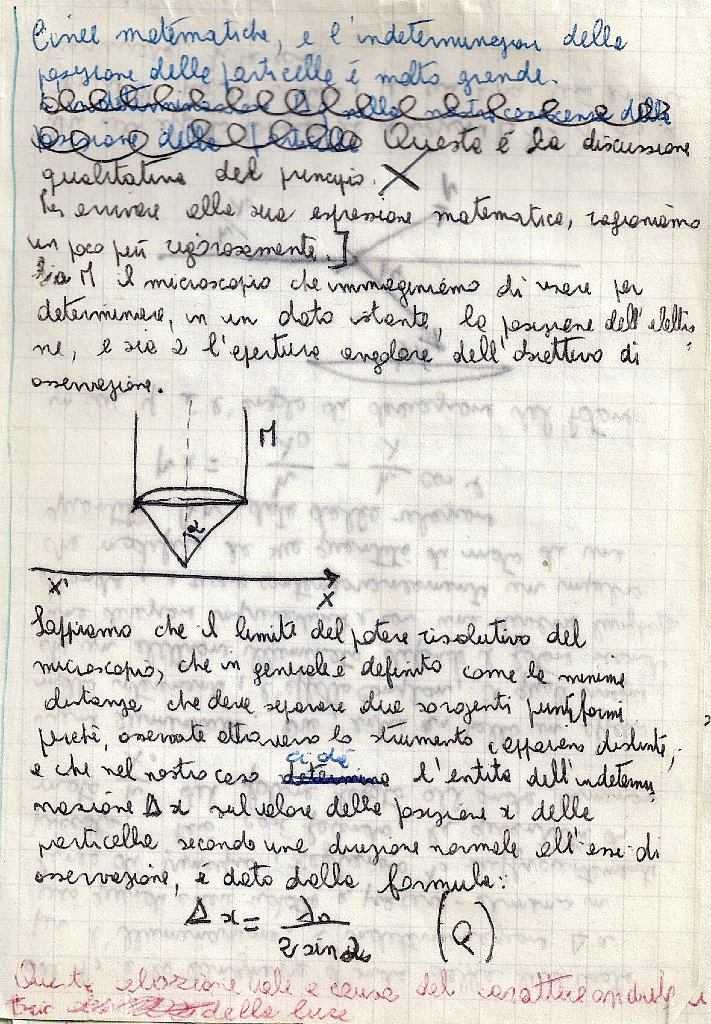 Linee matematiche, e l'indeterminazione della
posizione della particella é molto grande.
Questa é la discussione
qualitativa del principio.
Per arrivare alla sua espressione matematica, ragioniamo
un poco più rigorosamente.]
Sia M il microscopio che immaginiamo di usare per
determinare, in un dato istante, la posizione dell'elettro
ne, e sia α l'apertura angolare dell'obiettivo di
osservazione.
M
α
X' X
Sappiamo che il limite del potere risolutivo del
microscopio, che in generale é definito come la minima
distanza che deve separare due sorgenti puntiformi
perchè, osservate attraverso lo strumento, appaiano distinte,
ci dá
e che nel nostro caso determina l'entità dell'indetermi
nazione Δx sul valore della posizione x della
particella secondo una direzione normale all'asse di
osservazione, é dato dalla formula:
Δx = λ₀ / 2 sin α (Q)
vale a causa del carattere
della luce